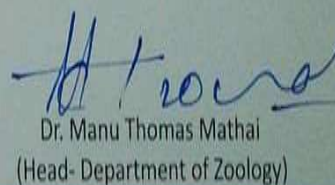 Dr. Manu Thomas Mathai
(Head- Department of Zoology)